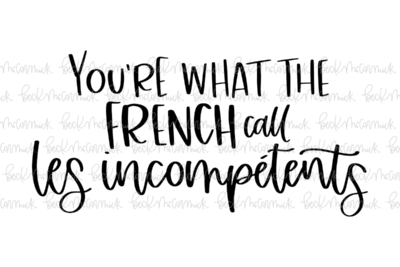 YOU'RE WHAT THE
FRENCH call
les incompétents